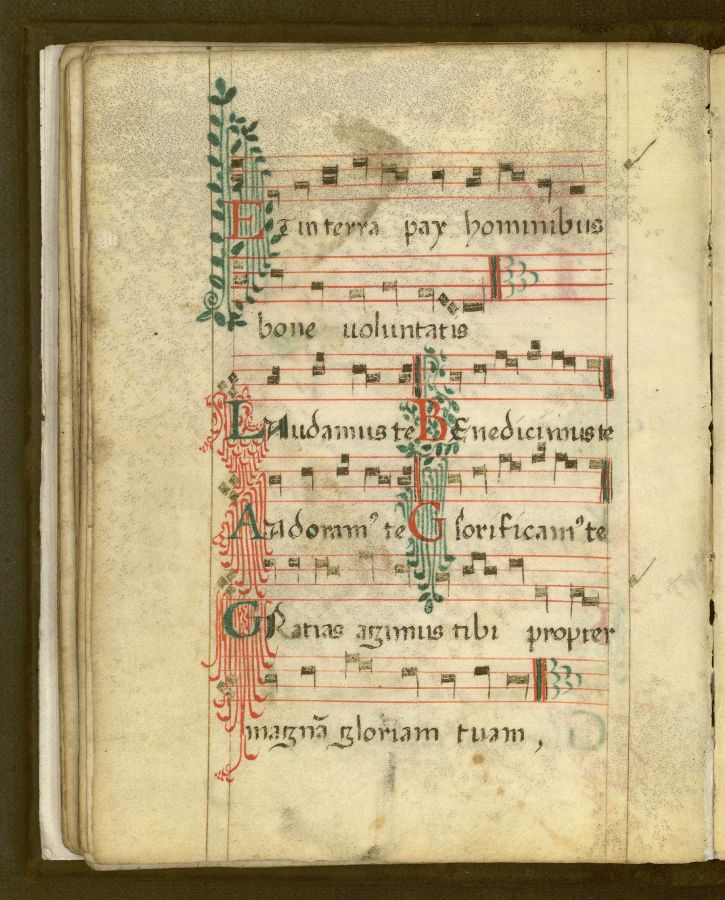 ET in terra pax hominibus
bone uoluntatis
LAudamus te BEnedicimus te
AAdoram⁹ te Glorificam⁹ te
GRatias agimus tibi propter
magnã gloriam tuam,